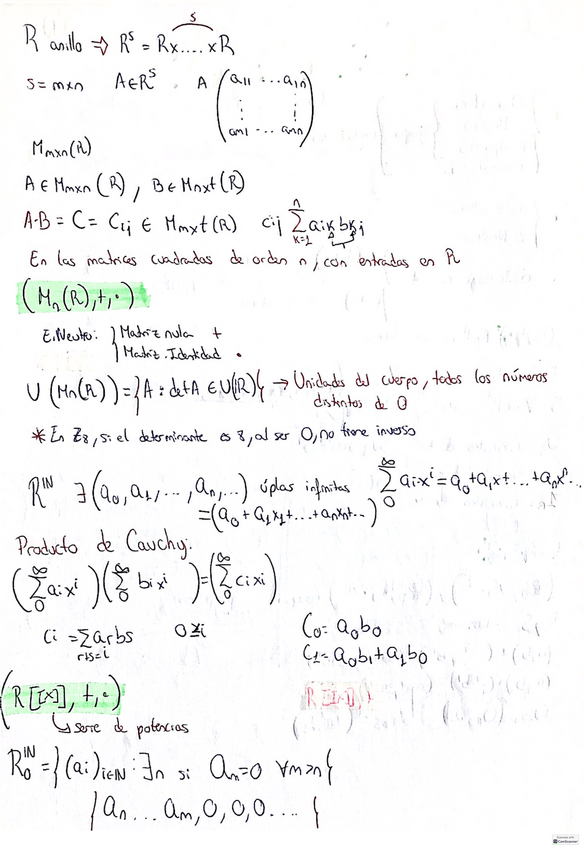 s
R anillo ⇒ R^s = Rx....xR
s = mxn A∈R^s A (a11 ... a1n
⋮ ⋮
am1 ... amn)
Mmxn(R)
A ∈ Mmxn(R), B ∈ Mnxt(R)
A·B = C = Cij ∈ Mmxt(R) Cij ∑_{k=1}^{n} aik bkj
En las matrices cuadradas de orden n, con entradas en R
(Mn(R), +, ·)
E.Neutro: } Matriz nula +
Matriz Identidad ·
U(Mn(R)) = }A : detA ∈ U(R){ → Unidades del cuerpo, todos los números
distintos de 0
* En Z8, si el determinante es 8, al ser 0, no tiene inverso
R^IN ∃ (a0, a1, ..., an, ...) úplas infinitas ∑_{0}^{∞} ai x^i = a0 + a1x + ... + anx^n...
= (a0 + a1x1 + ... + anxn + ...)
Producto de Cauchy:
(∑_{0}^{∞} ai x^i)(∑_{0}^{∞} bi x^i) = (∑_{0}^{∞} ci xi)
ci = ∑_{r+s=i} ar bs C0 = a0b0
C1 = a0b1 + a1b0
(R[[x]], +, ·) R[[x]],
↳ serie de potencias
R0^IN = }(ai)i∈IN : ∃n si am=0 ∀m>n{
}an ... am, 0, 0, 0 .... {
CamScanner